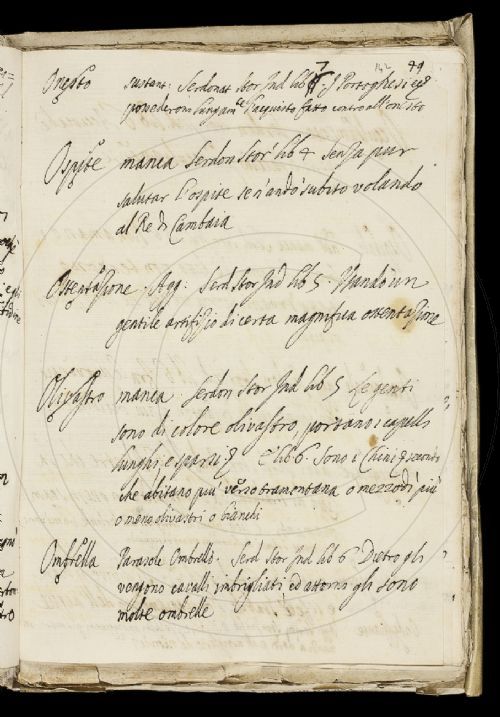 142 44
Onesto sustant: Serdonat Stor Ind lib 7 i Portoghesi ed
possederono lungam.te l'acquisto fatto contro all'onesto
Ospite manca Serdon Stor lib 4 senza pur
salutar l'ospite se n'andò subito volando
al Re di Cambaia
Ostentazione. Agg: Serd Stor Ind lib 5. Mandò un
gentile artifizio di certa magnifica ostentazione
Olivastro manca Serdon Stor Ind lib 5 Le genti
sono di colore olivastro, portano i capelli
lunghi, e sparsi E lib 6. Sono i Chini
che abitano più verso tramontana o mezzodì più
o meno olivastri o bianchi
Ombrella Parasole Ombrello. Serd Stor Ind lib 6 Dietro gli
vengono cavalli imbrigliati ed attorno gli sono
molte ombrelle